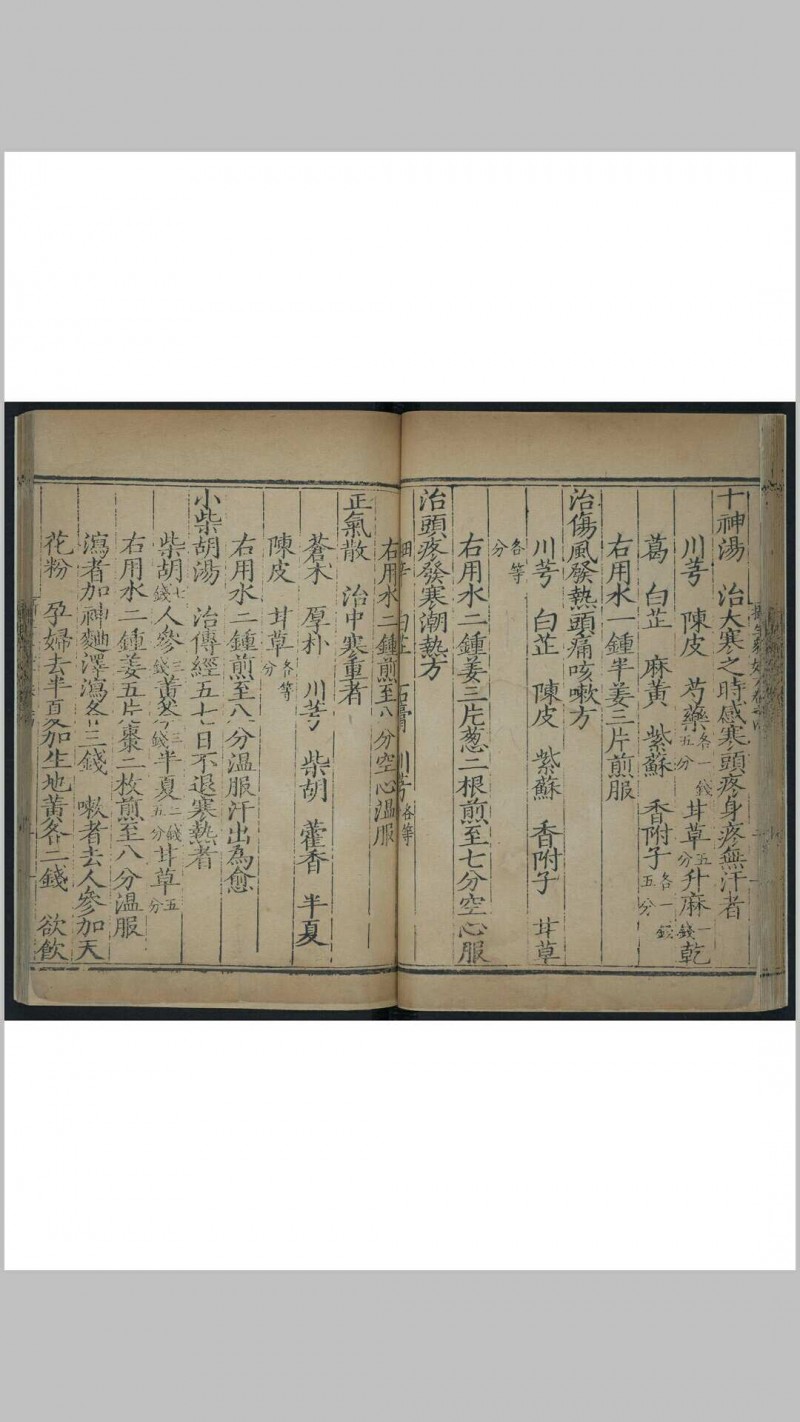 十神湯　治大寒之時感寒頭疼身疼無汗者
川芎　陳皮　芍藥各一錢五分　甘草五分　升麻一錢　乾
葛　白芷　麻黃　紫蘇　香附子各一錢五分
右用水一鍾半姜三片煎服
治傷風發熱頭痛咳嗽方
川芎　白芷　陳皮　紫蘇　香附子　甘草
各等分
右用水二鍾姜三片葱二根煎至七分空心服
治頭疼發寒潮熱方
細辛　白芷　石膏　川芎各等
右用水二鍾煎至八分空心溫服
正氣散　治中寒重者
蒼朮　厚朴　川芎　柴胡　藿香　半夏
陳皮　甘草各等分
右用水二鍾煎至八分溫服汗出為愈
小柴胡湯　治傳經五七日不退寒熱者
柴胡七錢　人參三錢　黃芩三錢　半夏二錢五分　甘草五分
右用水二鍾姜五片棗二枚煎至八分溫服
瀉者加神麯澤瀉各三錢　嗽者去人參加天
花粉　孕婦去半夏加生地黃各二錢　欲飲